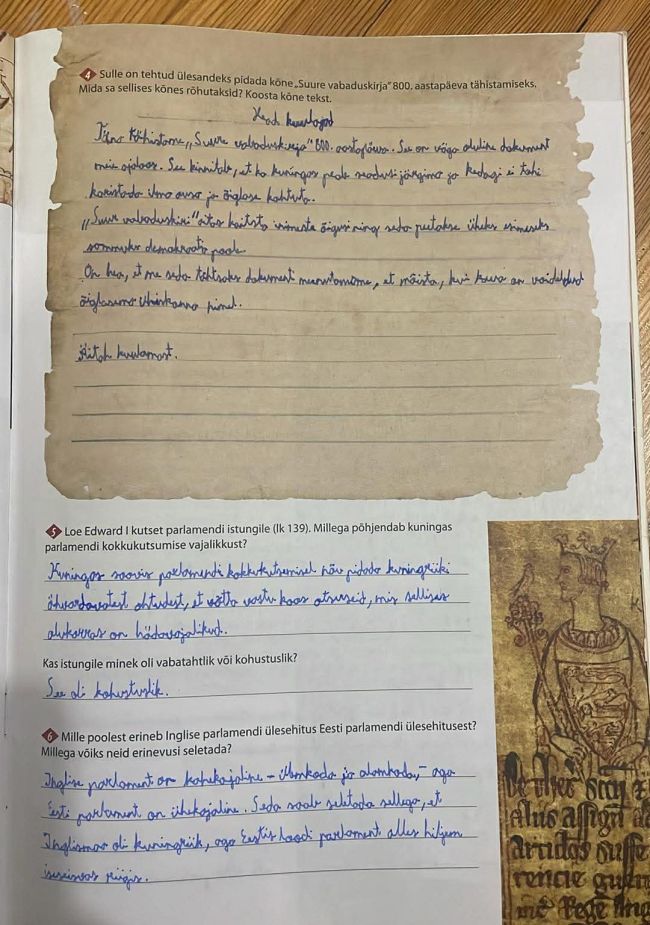 4 Sulle on tehtud ülesandeks pidada kõne „Suure vabaduskirja" 800. aastapäeva tähistamiseks.
Mida sa sellises kõnes rõhutaksid? Koosta kõne tekst.
Head kuulajad
Täna tähistame „Suure vabaduskirja" 800. aastapäeva. See on väga oluline dokument
meie ajaloos. See kinnitab, et ka kuningas peab seadusi järgima ja kedagi ei tohi
karistada ilma ausa ja õiglase kohtuta.
„Suur vabaduskiri" aitas kaitsta inimeste õigusi ning seda peetakse üheks esimeseks
sammuks demokraatia poole.
On hea, et me seda tähtsaks dokument meenutamame, et mõista, kui kaua on võideldud
õiglasema ühiskonna nimel.
Aitäh kuulamast.
5 Loe Edward I kutset parlamendi istungile (lk 139). Millega põhjendab kuningas
parlamendi kokkukutsumise vajalikkust?
Kuningas soovis parlamendi kokkukutsumisel nõu pidada kuningriiki
ähvardavatest ohtudest, et võtta vastu koos otsuseid, mis sellises
olukorras on hädavajalikud.
Kas istungile minek oli vabatahtlik või kohustuslik?
See oli kohustuslik.
6 Mille poolest erineb Inglise parlamendi ülesehitus Eesti parlamendi ülesehitusest?
Millega võiks neid erinevusi seletada?
Inglise parlament on kahekojaline – ülemkoda ja alamkoda, – aga
Eesti parlament on ühekojaline. Seda saab seletada sellega, et
Inglismaa oli kuningriik, aga Eestis loodi parlament alles hiljem
iseseisvas riigis.